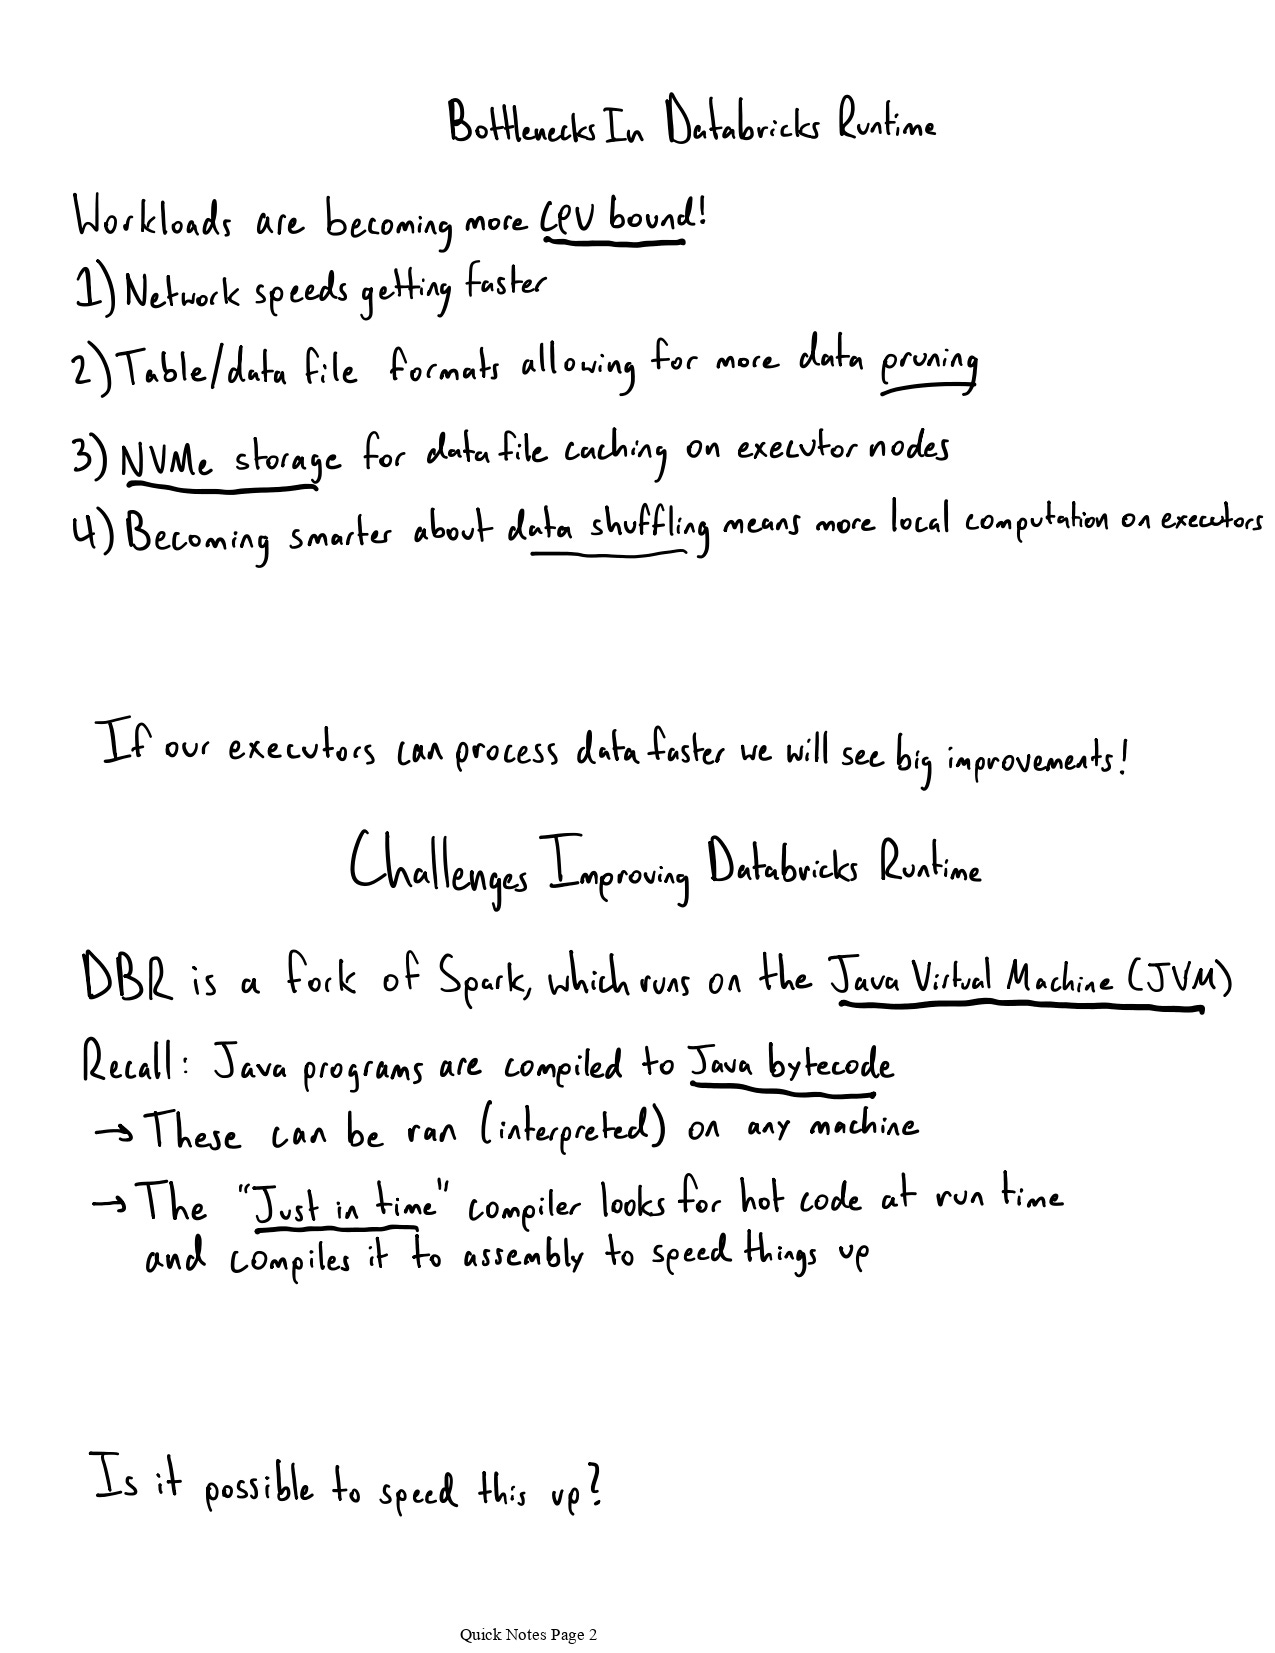 Bottlenecks In Databricks Runtime
Workloads are becoming more CPU bound!
1) Network speeds getting faster
2) Table/data file formats allowing for more data pruning
3) NVMe storage for data file caching on executor nodes
4) Becoming smarter about data shuffling means more local computation on executors
If our executors can process data faster we will see big improvements!
Challenges Improving Databricks Runtime
DBR is a fork of Spark, which runs on the Java Virtual Machine (JVM)
Recall: Java programs are compiled to Java bytecode
→ These can be ran (interpreted) on any machine
→ The "Just in time" compiler looks for hot code at run time
and compiles it to assembly to speed things up
Is it possible to speed this up?
Quick Notes Page 2